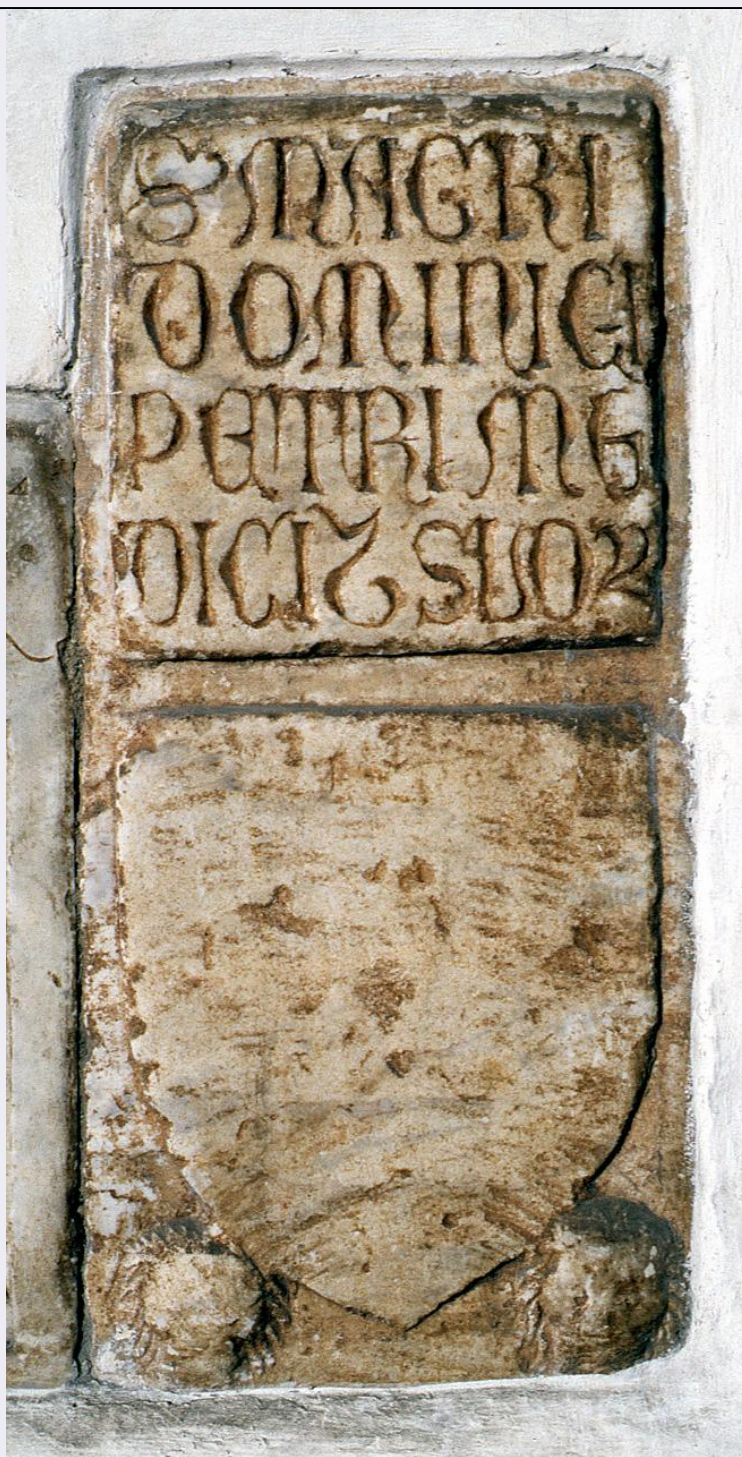 S MAGRI
DOMINICI
PETRI ME
DICI ⁊ SUOꝜ